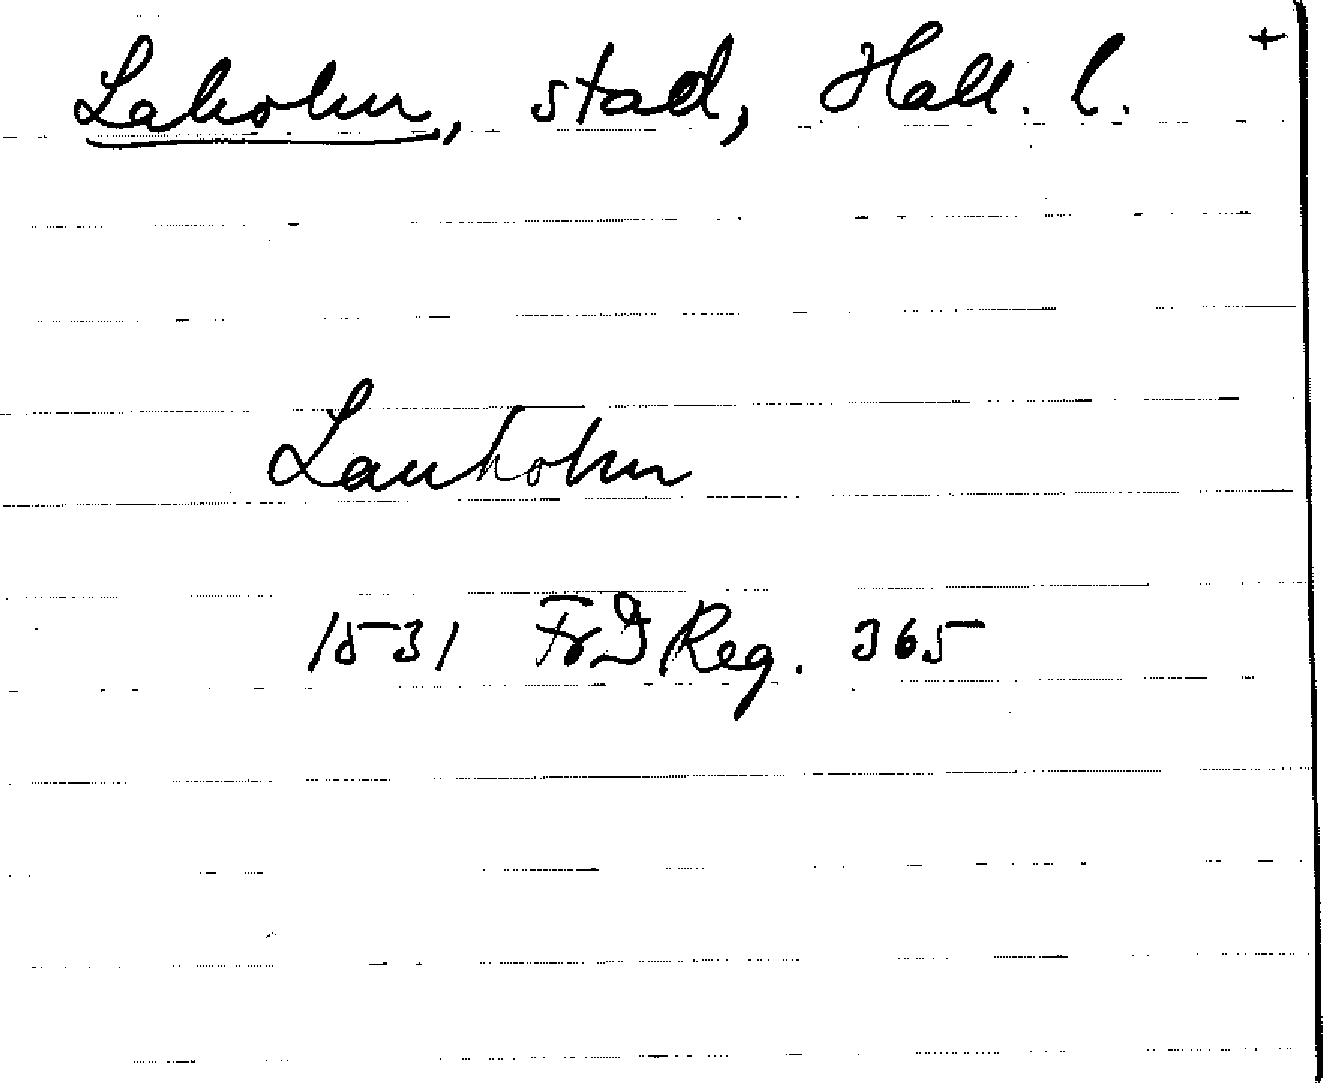 Laholm, stad, Hall. l. +
Lauholm
1531 FrIReg. 365